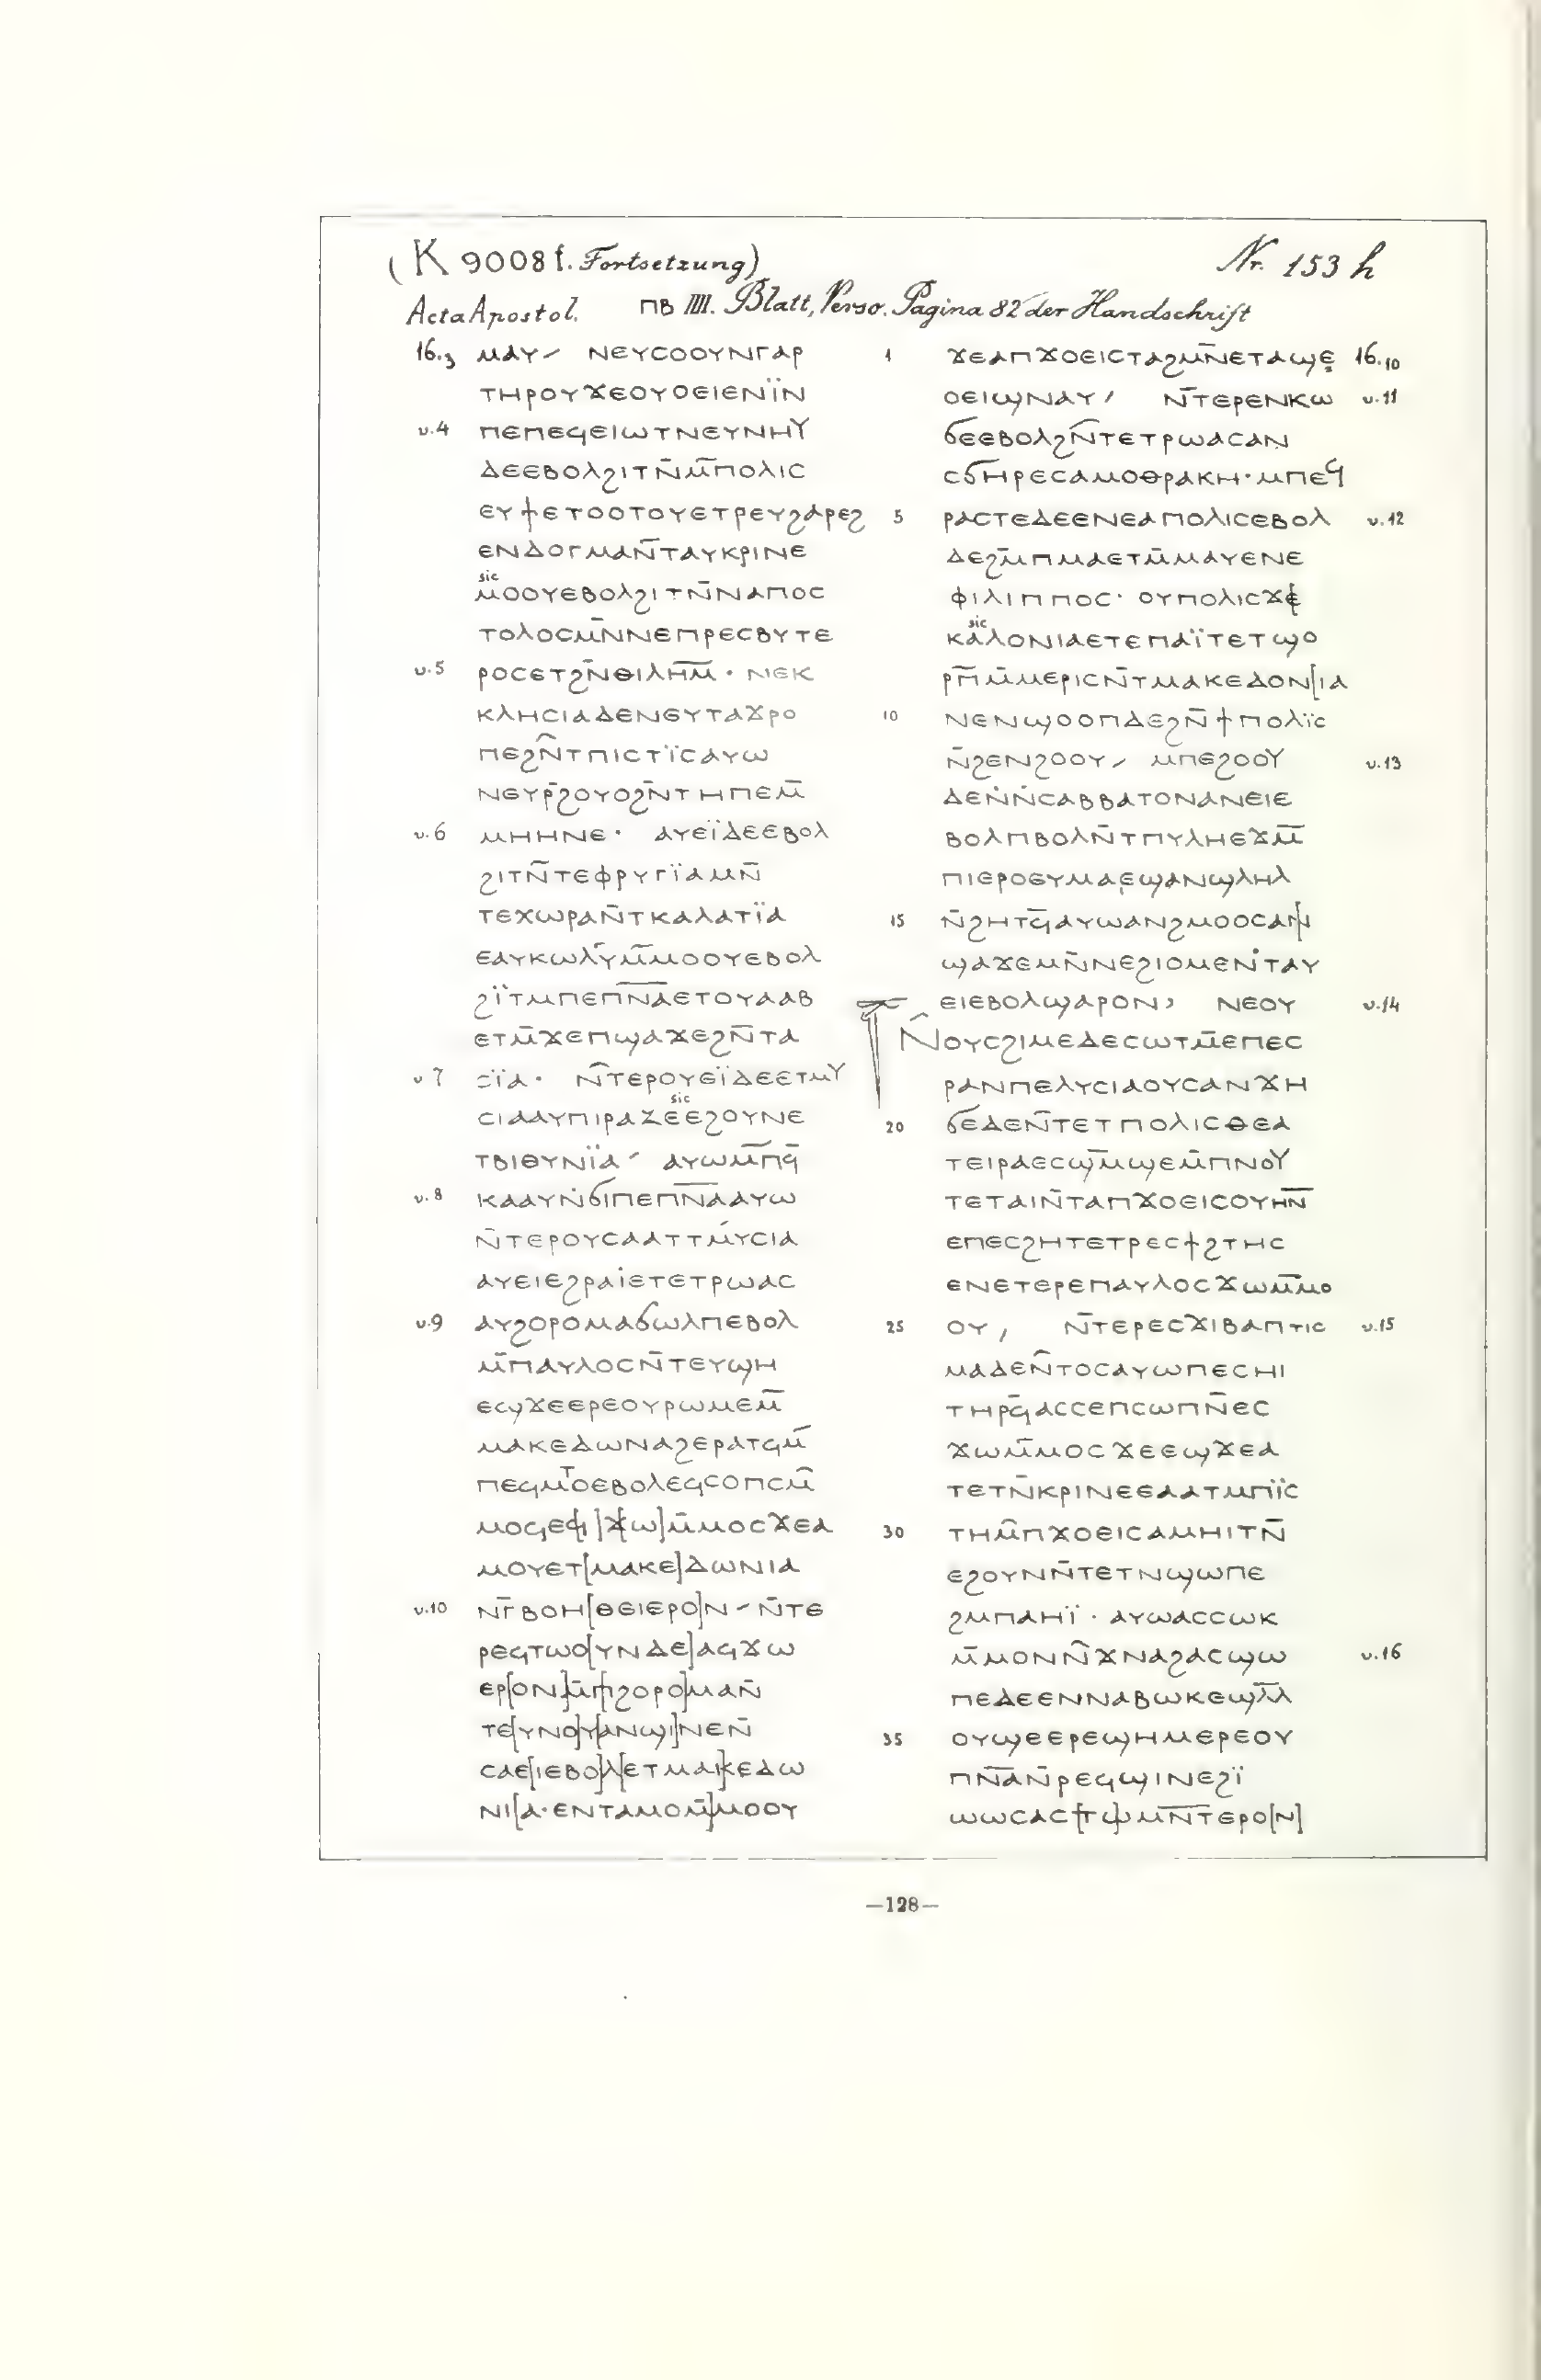 (K 9008 f. Fortsetzung) Nr. 153 h
Acta Apostol. ⲡⲃ IIII. Blatt, Verso. Pagina 82 der Handschrift
16.3 ⲙⲁⲩ ⸍ ⲛⲉⲩⲥⲟⲟⲩⲛⲅⲁⲣ
ⲧⲏⲣⲟⲩϫⲉⲟⲩⲟⲉⲓⲉⲛⲓ̈ⲛ
v.4 ⲡⲉⲡⲉϥⲉⲓⲱⲧⲛⲉⲩⲛⲏⲩ
ⲇⲉⲉⲃⲟⲗϩⲓⲧⲛ̄ⲙ̄ⲡⲟⲗⲓⲥ
ⲉⲩϯⲉⲧⲟⲟⲧⲟⲩⲉⲧⲣⲉⲩϩⲁⲣⲉϩ
ⲉⲛⲇⲟⲅⲙⲁⲛ̄ⲧⲁⲩⲕⲣⲓⲛⲉ
sic
ⲙ̄ⲟⲟⲩⲉⲃⲟⲗϩⲓⲧⲛ̄ⲛⲁⲡⲟⲥ
ⲧⲟⲗⲟⲥⲙⲛ̄ⲛⲉⲡⲣⲉⲥⲃⲩⲧⲉ
v.5 ⲣⲟⲥⲉⲧϩⲛ̄ⲑⲓⲗⲏ̄ⲙ̄ · ⲛⲉⲕ
ⲕⲗⲏⲥⲓⲁⲇⲉⲛⲉⲩⲧⲁϫⲣⲟ
ⲡⲉϩⲛ̄ⲧⲡⲓⲥⲧⲓ̈ⲥⲁⲩⲱ
ⲛⲉⲩⲣ̄ϩⲟⲩⲟϩⲛ̄ⲧⲏⲡⲉⲙ̄
v.6 ⲙⲏⲏⲛⲉ · ⲁⲩⲉⲓ̈ⲇⲉⲉⲃⲟⲗ
ϩⲓⲧⲛ̄ⲧⲉⲫⲣⲩⲅⲓ̈ⲁⲙⲛ̄
ⲧⲉⲭⲱⲣⲁⲛ̄ⲧⲕⲁⲗⲁⲧⲓ̈ⲁ
ⲉⲁⲩⲕⲱⲗⲩⲙ̄ⲙⲟⲟⲩⲉⲃⲟⲗ
ϩⲓ̈ⲧⲙⲡⲉⲡ̄ⲛ̄ⲁ̄ⲉⲧⲟⲩⲁⲁⲃ
ⲉⲧⲙ̄ϫⲉⲡϣⲁϫⲉϩⲛ̄ⲧⲁ
v 7 ⲥⲓ̈ⲁ · ⲛ̄ⲧⲉⲣⲟⲩⲉⲓ̈ⲇⲉⲉⲧⲙⲩ
sic
ⲥⲓⲁⲁⲩⲡⲓⲣⲁⲍⲉⲉϩⲟⲩⲛⲉ
ⲧⲃⲓⲑⲩⲛⲓ̈ⲁ ⸍ ⲁⲩⲱⲙ̄ⲡϥ̄
v.8 ⲕⲁⲁⲩⲛ̇ϭⲓⲡⲉⲡ̄ⲛ̄ⲁ̄ⲁⲩⲱ
ⲛ̄ⲧⲉⲣⲟⲩⲥⲁⲁⲧⲧⲙⲩⲥⲓⲁ
ⲁⲩⲉⲓⲉϩⲣⲁⲓ̈ⲉⲧⲉⲧⲣⲱⲁⲥ
v.9 ⲁⲩϩⲟⲣⲟⲙⲁϭⲱⲗⲡⲉⲃⲟⲗ
ⲙ̄ⲡⲁⲩⲗⲟⲥⲛ̄ⲧⲉⲩϣⲏ
ⲉⲥϣϫⲉⲉⲣⲉⲟⲩⲣⲱⲙⲉⲙ̄
ⲙⲁⲕⲉⲇⲱⲛⲁϩⲉⲣⲁⲧϥⲙ̄
ⲡⲉϥⲙⲧⲟⲉⲃⲟⲗⲉϥⲥⲟⲡⲥⲙ̄
ⲙⲟϥⲉϥ[ϫⲱ]ⲙ̄ⲙⲟⲥϫⲉⲁ
ⲙⲟⲩⲉⲧ[ⲙⲁⲕⲉ]ⲇⲱⲛⲓⲁ
v.10 ⲛⲅ̄ⲃⲟⲏ[ⲑⲉⲓⲉⲣⲟ]ⲛ ⸍ ⲛ̄ⲧⲉ
ⲣⲉϥⲧⲱⲟ[ⲩⲛⲇⲉ]ⲁϥϫⲱ
ⲉⲣ[ⲟⲛ]ⲙ̄ⲫ[ϩⲟⲣⲟ]ⲙⲁⲛ̄
ⲧⲉ[ⲩⲛⲟ]ⲩ[ⲁⲛϣⲓ]ⲛⲉⲛ̄
ⲥⲁⲉ[ⲓⲉⲃⲟ]ⲗ[ⲉⲧⲙⲁ]ⲕⲉⲇⲱ
ⲛⲓ[ⲁ·ⲉⲛⲧⲁⲙⲟⲙ̄]ⲙⲟⲟⲩ
1 ϫⲉⲁⲡϫⲟⲉⲓⲥⲧⲁϩⲙⲛ̄ⲉⲧⲁϣⲉ 16.10
ⲟⲉⲓϣⲛⲁⲩ ⸍ ⲛ̄ⲧⲉⲣⲉⲛⲕⲱ v.11
ϭⲉⲉⲃⲟⲗϩⲛ̄ⲧⲉⲧⲣⲱⲁⲥⲁⲛ
ⲥϭⲏⲣⲉⲥⲁⲙⲟⲑⲣⲁⲕⲏ·ⲙⲡⲉϥ
5 ⲣⲁⲥⲧⲉⲇⲉⲉⲛⲉⲁⲡⲟⲗⲓⲥⲉⲃⲟⲗ v.12
ⲇⲉϩⲙ̄ⲡⲙⲁⲉⲧⲙ̄ⲙⲁⲩⲉⲛⲉ
ⲫⲓⲗⲓⲡⲡⲟⲥ· ⲟⲩⲡⲟⲗⲓⲥϫⲉ
sic
ⲕⲁⲗⲟⲛⲓⲁⲉⲧⲉⲡⲁⲓ̈ⲧⲉⲧϣⲟ
ⲣⲡ̄ⲙ̄ⲙⲉⲣⲓⲥⲛ̄ⲧⲙⲁⲕⲉⲇⲟⲛ[ⲓⲁ
10 ⲛⲉⲛϣⲟⲟⲡⲇⲉϩⲛ̄ϯⲡⲟⲗⲓ̈ⲥ
ⲛ̄ϩⲉⲛϩⲟⲟⲩ ⸍ ⲙⲡⲉϩⲟⲟⲩ v.13
ⲇⲉⲛ̇ⲛ̇ⲥⲁⲃⲃⲁⲧⲟⲛⲁⲛⲉⲓⲉ
ⲃⲟⲗⲡⲃⲟⲗⲛ̄ⲧⲡⲩⲗⲏⲉϫⲙ̄
ⲡⲓⲉⲣⲟⲉⲩⲙⲁⲉϣⲁⲛϣⲗⲏⲗ
15 ⲛ̄ϩⲏⲧϥ̄ⲁⲩⲱⲁⲛϩⲙⲟⲟⲥⲁⲛ
ϣⲁϫⲉⲙⲛ̄ⲛⲉϩⲓⲟⲙⲉⲛ̇ⲧⲁⲩ
ⲉⲓⲉⲃⲟⲗϣⲁⲣⲟⲛ⸌ ⲛⲉⲟⲩ v.14
ⲛ̂ⲟⲩⲥϩⲓⲙⲉⲇⲉⲥⲱⲧⲙ̄ⲉⲡⲉⲥ
ⲣⲁⲛⲡⲉⲗⲩⲥⲓⲁⲟⲩⲥⲁⲛϫⲏ
20 ϭⲉⲇⲉⲛ̄ⲧⲉⲧⲡⲟⲗⲓⲥⲑⲉⲁ
ⲧⲉⲓⲣⲁⲉⲥϣⲙ̄ϣⲉⲙ̄ⲡⲛⲟⲩ
ⲧⲉⲧⲁⲓⲛ̄ⲧⲁⲡϫⲟⲉⲓⲥⲟⲩⲏ̄ⲛ̄
ⲉⲡⲉⲥϩⲏⲧⲉⲧⲣⲉⲥϯϩⲧⲏⲥ
ⲉⲛⲉⲧⲉⲣⲉⲡⲁⲩⲗⲟⲥϫⲱⲙ̄ⲙⲟ
25 ⲟⲩ ⸍ ⲛ̄ⲧⲉⲣⲉⲥϫⲓⲃⲁⲡⲧⲓⲥ v.15
ⲙⲁⲇⲉⲛ̄ⲧⲟⲥⲁⲩⲱⲡⲉⲥⲏⲓ
ⲧⲏⲣϥ̄ⲁⲥⲥⲉⲡⲥⲱⲡⲛ̄ⲉⲥ
ϫⲱⲙ̄ⲙⲟⲥϫⲉⲉϣϫⲉⲁ
ⲧⲉⲧⲛ̄ⲕⲣⲓⲛⲉⲉⲁⲁⲧⲙⲡⲓ̈ⲥ
30 ⲧⲏⲙ̄ⲡϫⲟⲉⲓⲥⲁⲙⲏⲓⲧⲛ̄
ⲉϩⲟⲩⲛⲛ̄ⲧⲉⲧⲛϣⲱⲡⲉ
ϩⲙⲡⲁⲏⲓ̈ · ⲁⲩⲱⲁⲥⲥⲱⲕ
ⲙ̄ⲙⲟⲛⲛ̄ϫⲛⲁϩⲁⲥϣⲱ v.16
ⲡⲉⲇⲉⲉⲛⲛⲁⲃⲱⲕⲉϣⲗ̄ⲗ
35 ⲟⲩϣⲉⲉⲣⲉϣⲏⲙⲉⲣⲉⲟⲩ
ⲡ̄ⲛ̄ⲁ̄ⲛ̄ⲣⲉϥϣⲓⲛⲉϩⲓ̈
ⲱⲱⲥⲁⲥ[ⲧⲱ]ⲙⲛ̄ⲧⲉⲣⲟ[ⲛ]
—128—